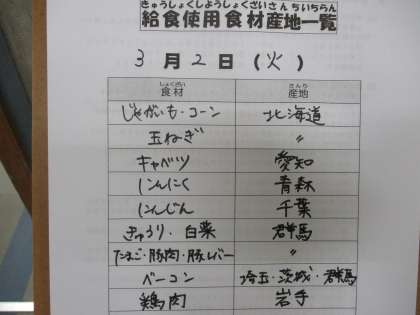 きゅうしょくしようしょくざいさんちいちらん
給食使用食材産地一覧
3月2日(火)
しょくざい さんち
食材 産地
じゃがいも・コーン 北海道
玉ねぎ 〃
キャベツ 愛知
にんにく 青森
にんじん 千葉
きゅうり・白菜 群馬
たまご・豚肉・豚レバー 〃
ベーコン 埼玉・茨城・群馬
鶏肉 岩手